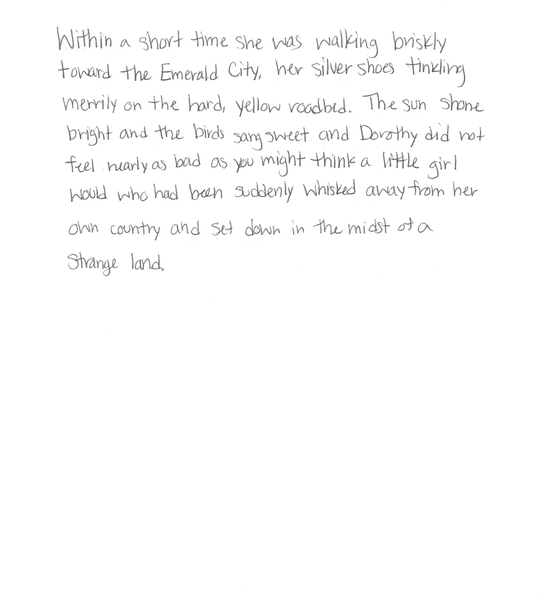 Within a short time she was walking briskly
toward the Emerald City, her silver shoes tinkling
merrily on the hard, yellow roadbed. The sun shone
bright and the birds sang sweet and Dorothy did not
feel nearly as bad as you might think a little girl
would who had been suddenly whisked away from her
own country and set down in the midst of a
strange land.